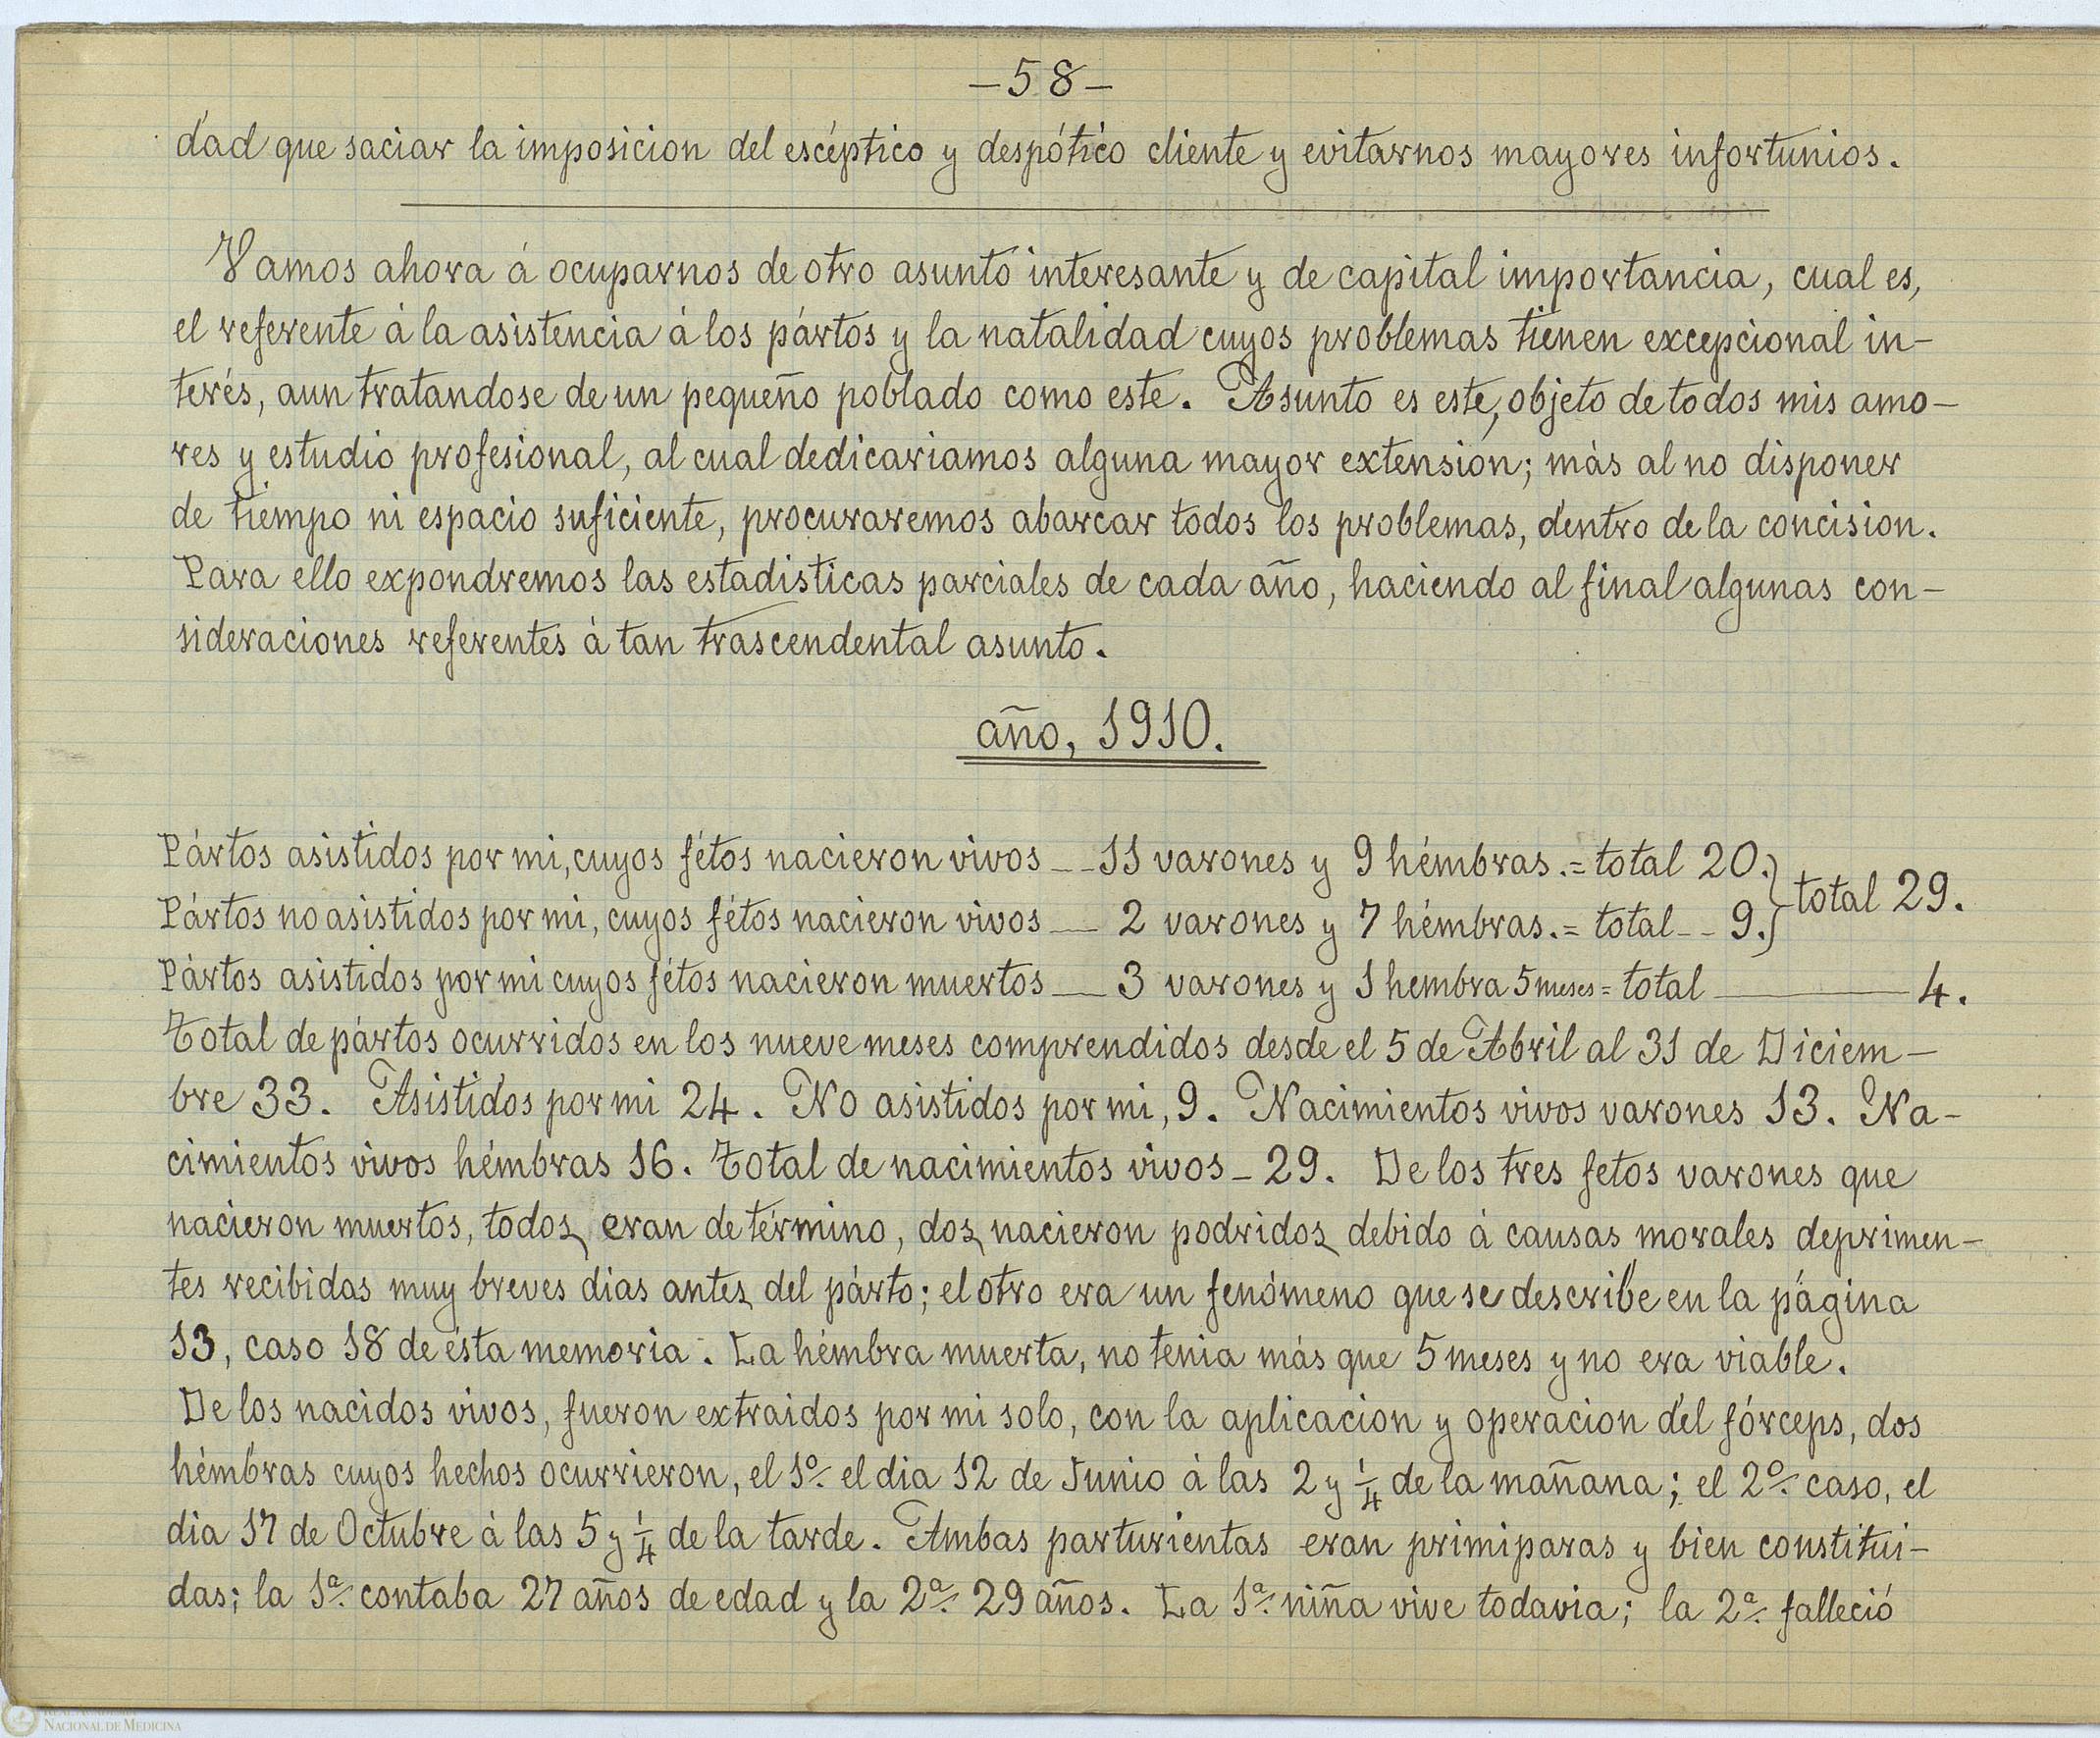 -58-
dad que saciar la imposicion del escéptico y despótico cliente y evitarnos mayores infortunios.
Vamos ahora á ocuparnos de otro asunto interesante y de capital importancia, cual es,
el referente á la asistencia á los pártos y la natalidad cuyos problemas tienen excepcional in-
terés, aun tratandose de un pequeño poblado como este. Asunto es este, objeto de todos mis amo-
res y estudio profesional, al cual dedicariamos alguna mayor extensión; más al no disponer
de tiempo ni espacio suficiente, procuraremos abarcar todos los problemas, dentro de la concision.
Para ello expondremos las estadisticas parciales de cada año, haciendo al final algunas con-
sideraciones referentes á tan trascendental asunto.
año, 1910.
Pártos asistidos por mi, cuyos fétos nacieron vivos -- 11 varones y 9 hémbras. = total 20.} total 29.
Pártos no asistidos por mi, cuyos fétos nacieron vivos -- 2 varones y 7 hémbras. = total -- 9.}
Pártos asistidos por mi cuyos fétos nacieron muertos -- 3 varones y 1 hembra 5 meses = total ---- 4.
Total de pártos ocurridos en los nueve meses comprendidos desde el 5 de Abril al 31 de Diciem-
bre 33. Asistidos por mi 24. No asistidos por mi, 9. Nacimientos vivos varones 13. Na-
cimientos vivos hémbras 16. Total de nacimientos vivos - 29. De los tres fetos varones que
nacieron muertos, todos, eran de término, dos, nacieron podridos, debido á causas morales deprimen-
tes recibidas muy breves dias antes, del párto; el otro era un fenómeno que se describe en la página
13, caso 18 de ésta memoria. La hémbra muerta, no tenia más que 5 meses y no era viable.
De los nacidos vivos, fueron extraidos por mi solo, con la aplicacion y operacion del fórceps, dos
hémbras cuyos hechos ocurrieron, el 1º. el dia 12 de Junio á las 2 y 1/4 de la mañana; el 2º. caso, el
dia 17 de Octubre á las 5 y 1/4 de la tarde. Ambas parturientas eran primiparas y bien constitui-
das; la 1ª. contaba 27 años de edad y la 2ª. 29 años. La 1ª. niña vive todavia; la 2ª. falleció
REAL ACADEMIA
NACIONAL DE MEDICINA